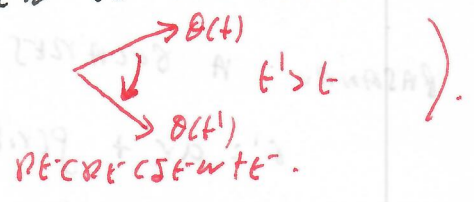 θ(t)
t' > t ).
θ(t')
DECRECIENTE.